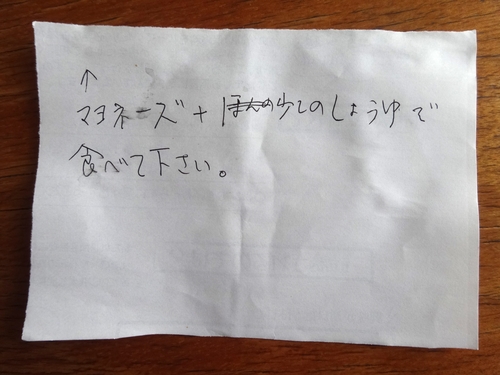 ↑
マヨネーズ+ほんの少しのしょうゆで
食べて下さい。